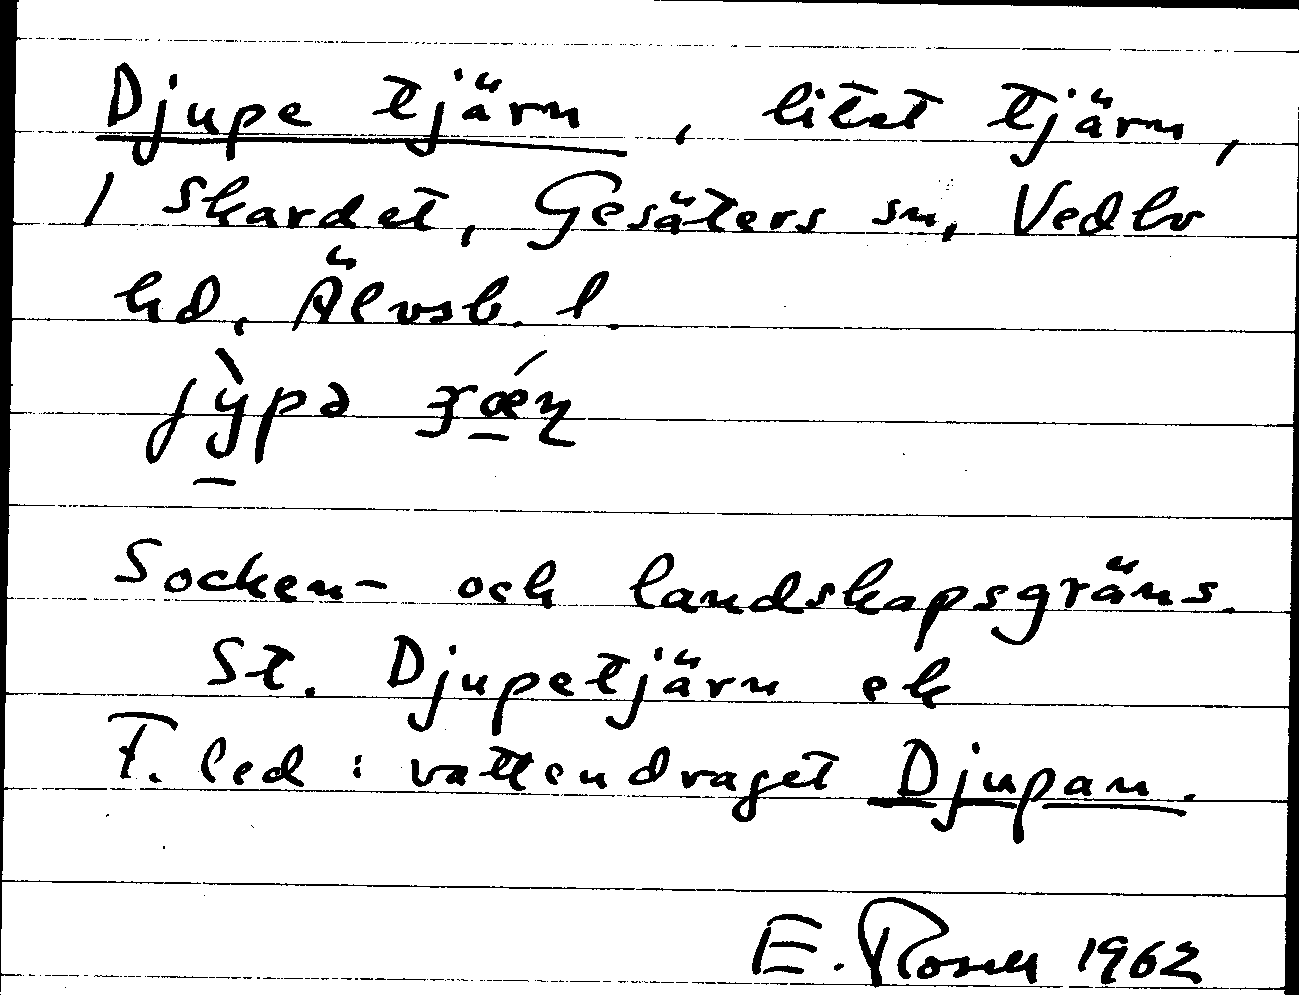 Djupe tjärn, litet tjärn,
/ Skardet, Gesäters sn, Vedbo
hd, Älvsb. l.
Socken- och landskapsgräns.
St. Djupetjärn ek
F. led: vattendraget Djupan.
E. 1962